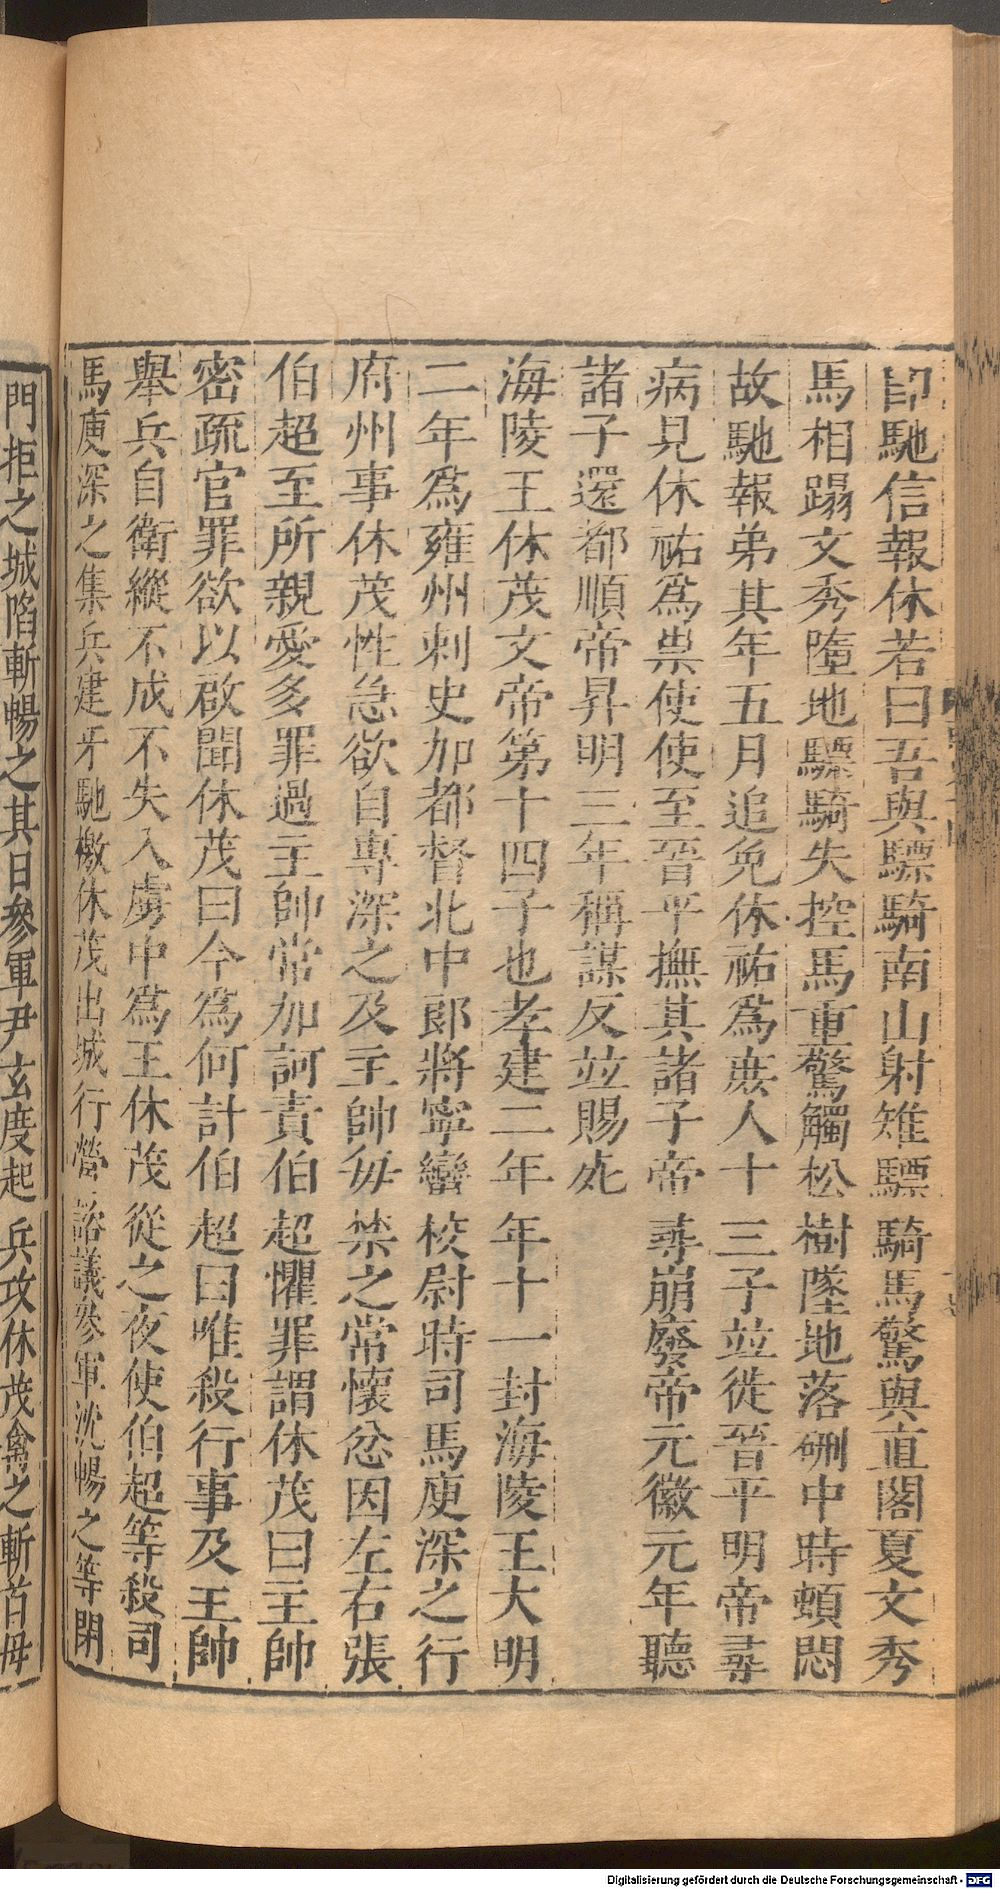 卽馳信報休若曰吾與驃騎南山射雉驃騎馬驚與直閣夏文秀
馬相蹋文秀墮地驃騎失控馬重驚觸松樹墜地落硎中時頓悶
故馳報弟其年五月追免休祐爲庶人十三子並徙晉平明帝尋
病見休祐爲祟使使至晉平撫其諸子帝尋崩廢帝元徽元年聽
諸子還都順帝昇明三年稱謀反並賜死
海陵王休茂文帝第十四子也孝建二年年十一封海陵王大明
二年爲雍州刺史加都督北中郎將寧蠻校尉時司馬庾深之行
府州事休茂性急欲自專深之及主帥每禁之常懷忿因左右張
伯超至所親愛多罪過主帥常加訶責伯超懼罪謂休茂曰主帥
密疏官罪欲以啟聞休茂曰今爲何計伯超曰唯殺行事及主帥
舉兵自衛縱不成不失入虜中爲王休茂從之夜使伯超等殺司
馬庾深之集兵建牙馳檄休茂出城行營諮議參軍沈暢之等閉
門拒之城陷斬暢之其日參軍尹玄度起兵攻休茂禽之斬首母
Digitalisierung gefördert durch die Deutsche Forschungsgemeinschaft - DFG